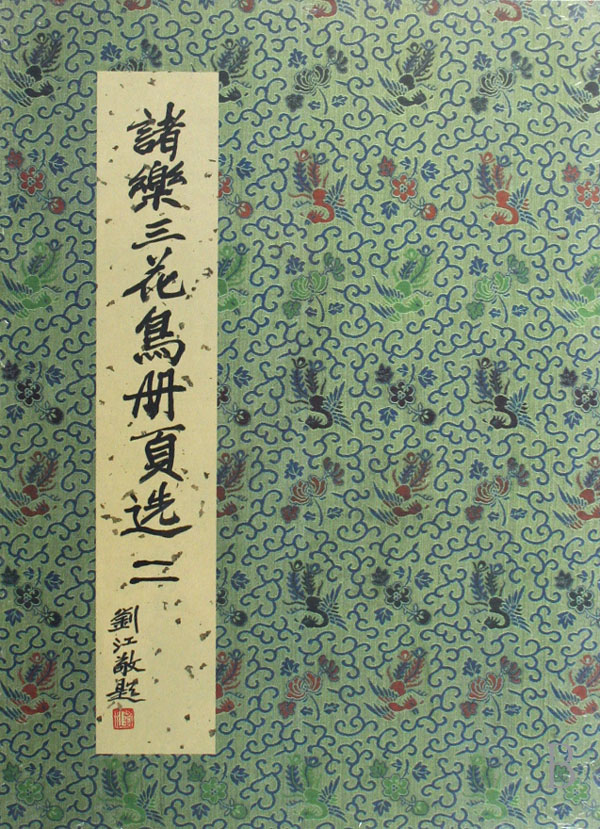 諸樂三花鳥册頁选二
劉江敬題